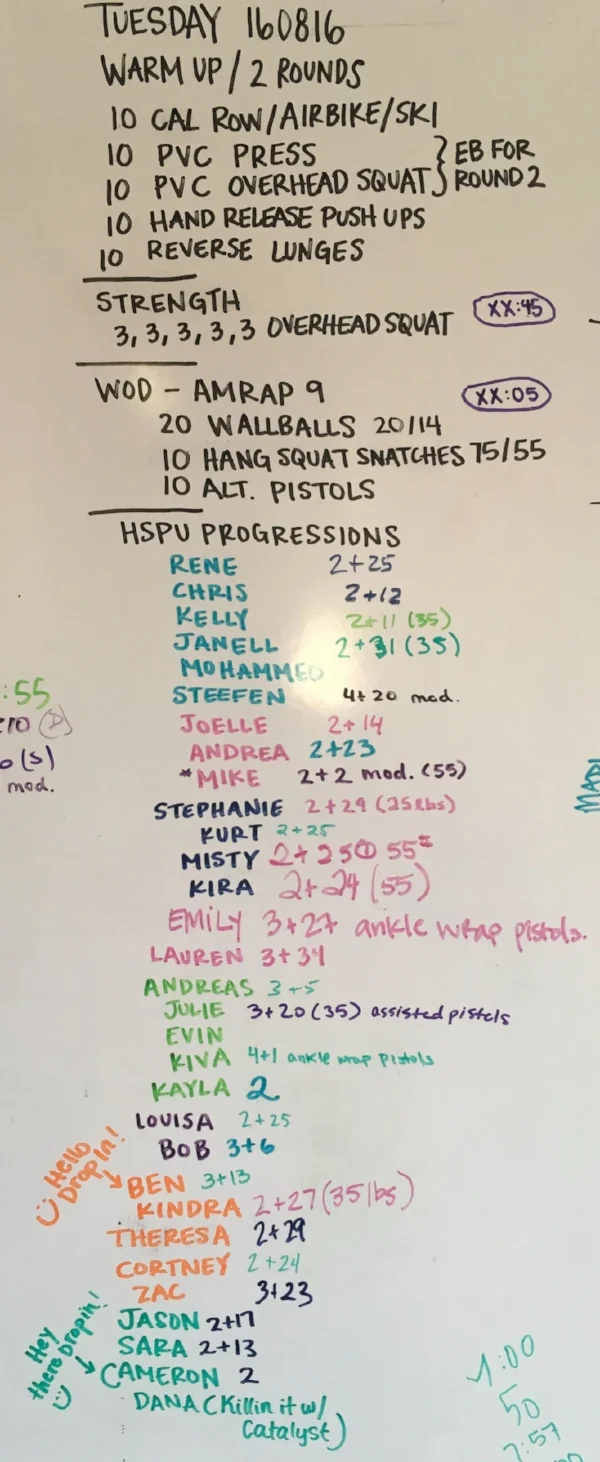 TUESDAY 160816
WARM UP / 2 ROUNDS
10 CAL ROW/AIRBIKE/SKI
10 PVC PRESS
10 PVC OVERHEAD SQUAT
} EB FOR
ROUND 2
10 HAND RELEASE PUSH UPS
10 REVERSE LUNGES
STRENGTH
3, 3, 3, 3, 3 OVERHEAD SQUAT
XX:45
WOD - AMRAP 9
XX:05
20 WALLBALLS 20/14
10 HANG SQUAT SNATCHES 75/55
10 ALT. PISTOLS
HSPU PROGRESSIONS
RENE 2+25
CHRIS 2+12
KELLY 2+11 (35)
JANELL 2+31 (35)
MOHAMMED
STEEFEN 4+20 mod.
JOELLE 2+14
ANDREA 2+23
*MIKE 2+2 mod. (55)
STEPHANIE 2+29 (25lbs)
KURT 2+25
MISTY 2+25 55#
KIRA 2+24 (55)
EMILY 3+27 ankle wrap pistols.
LAUREN 3+34
ANDREAS 3+5
JULIE 3+20 (35) assisted pistols
EVIN
KIVA 4+1 ankle wrap pistols
KAYLA 2
LOUISA 2+25
BOB 3+6
Hello
Drop In!
BEN 3+13
KINDRA 2+27 (35lbs)
THERESA 2+29
CORTNEY 2+24
ZAC 3+23
JASON 2+17
SARA 2+13
Hey
there Dropin!
CAMERON 2
DANA (Killin it w/
Catalyst)
:55
(S)
mod.
1:00
50